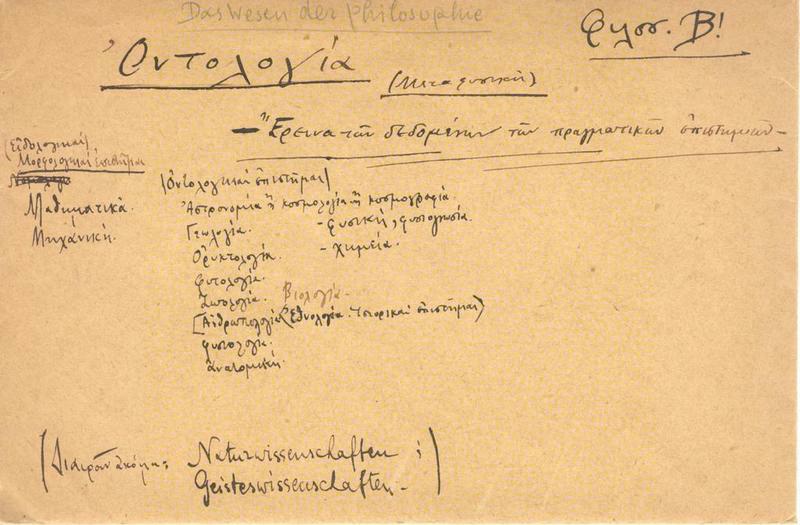 Das Wesen der Philosophie
Φιλοσ. Β!
Ὀντολογία
(Μεταφυσική)
– Ἔρευνα τῶν δεδομένων τῶν πραγματικῶν ἐπιστημῶν –
(Εἰδολογικαί)
Μορφολογικαί ἐπιστῆμαι
Μαθηματικά.
Μηχανική.
(Ὀντολογικαί ἐπιστῆμαι)
Ἀστρονομία ἤ κοσμολογία ἤ κοσμογραφία.
Γεωλογία. – φυσική, φυσιογνωσία.
Ὀρυκτολογία. – χημεία.
φυτολογία.
Ζωολογία. Βιολογία –
[Ἀνθρωπολογία (Ἐθνολογία. Ἱστορικαί ἐπιστῆμαι)
φυσιολογία.
ἀνατομική.
(Διαιροῦν ἀκόμα: Naturwissenschaften ;
Geisteswissenschaften. – )